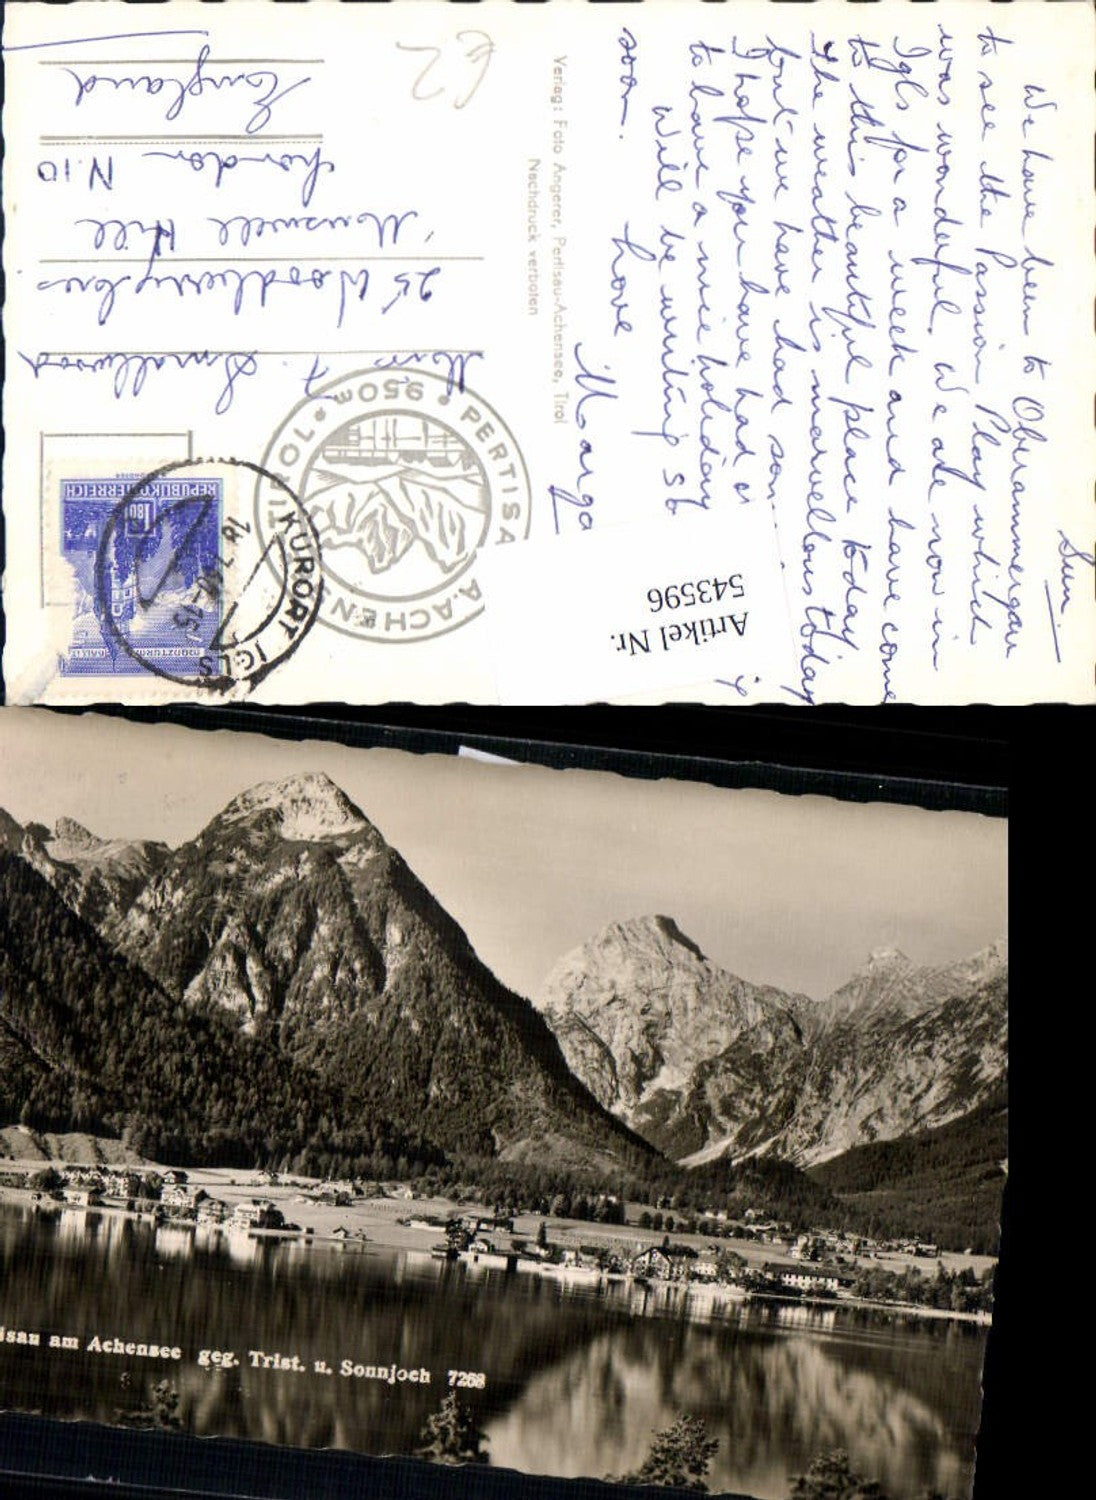 Sun.
We have been to Oberammergau
to see the Passion Play which
was wonderful. We are now in
Igls for a week and have come
to this beautiful place today.
The weather is marvellous today
but we have had some
I hope you have had or
to have a nice holiday
Will be writing
soon.
Love
Verlag: Foto Angerer, Pertisau-Achensee, Tirol
Nachdruck verboten
PERTISAU A. ACHENSEE
TIROL • 950m •
Artikel Nr.
543596
€2
REPUBLIK ÖSTERREICH
1.80
MÜNZTURM HALL
KURORT IGLS
F. Smallwood
25 Woodberry Cres
Muswell Hill
London N.10
England
isau am Achensee geg. Trist. u. Sonnjoch 7268